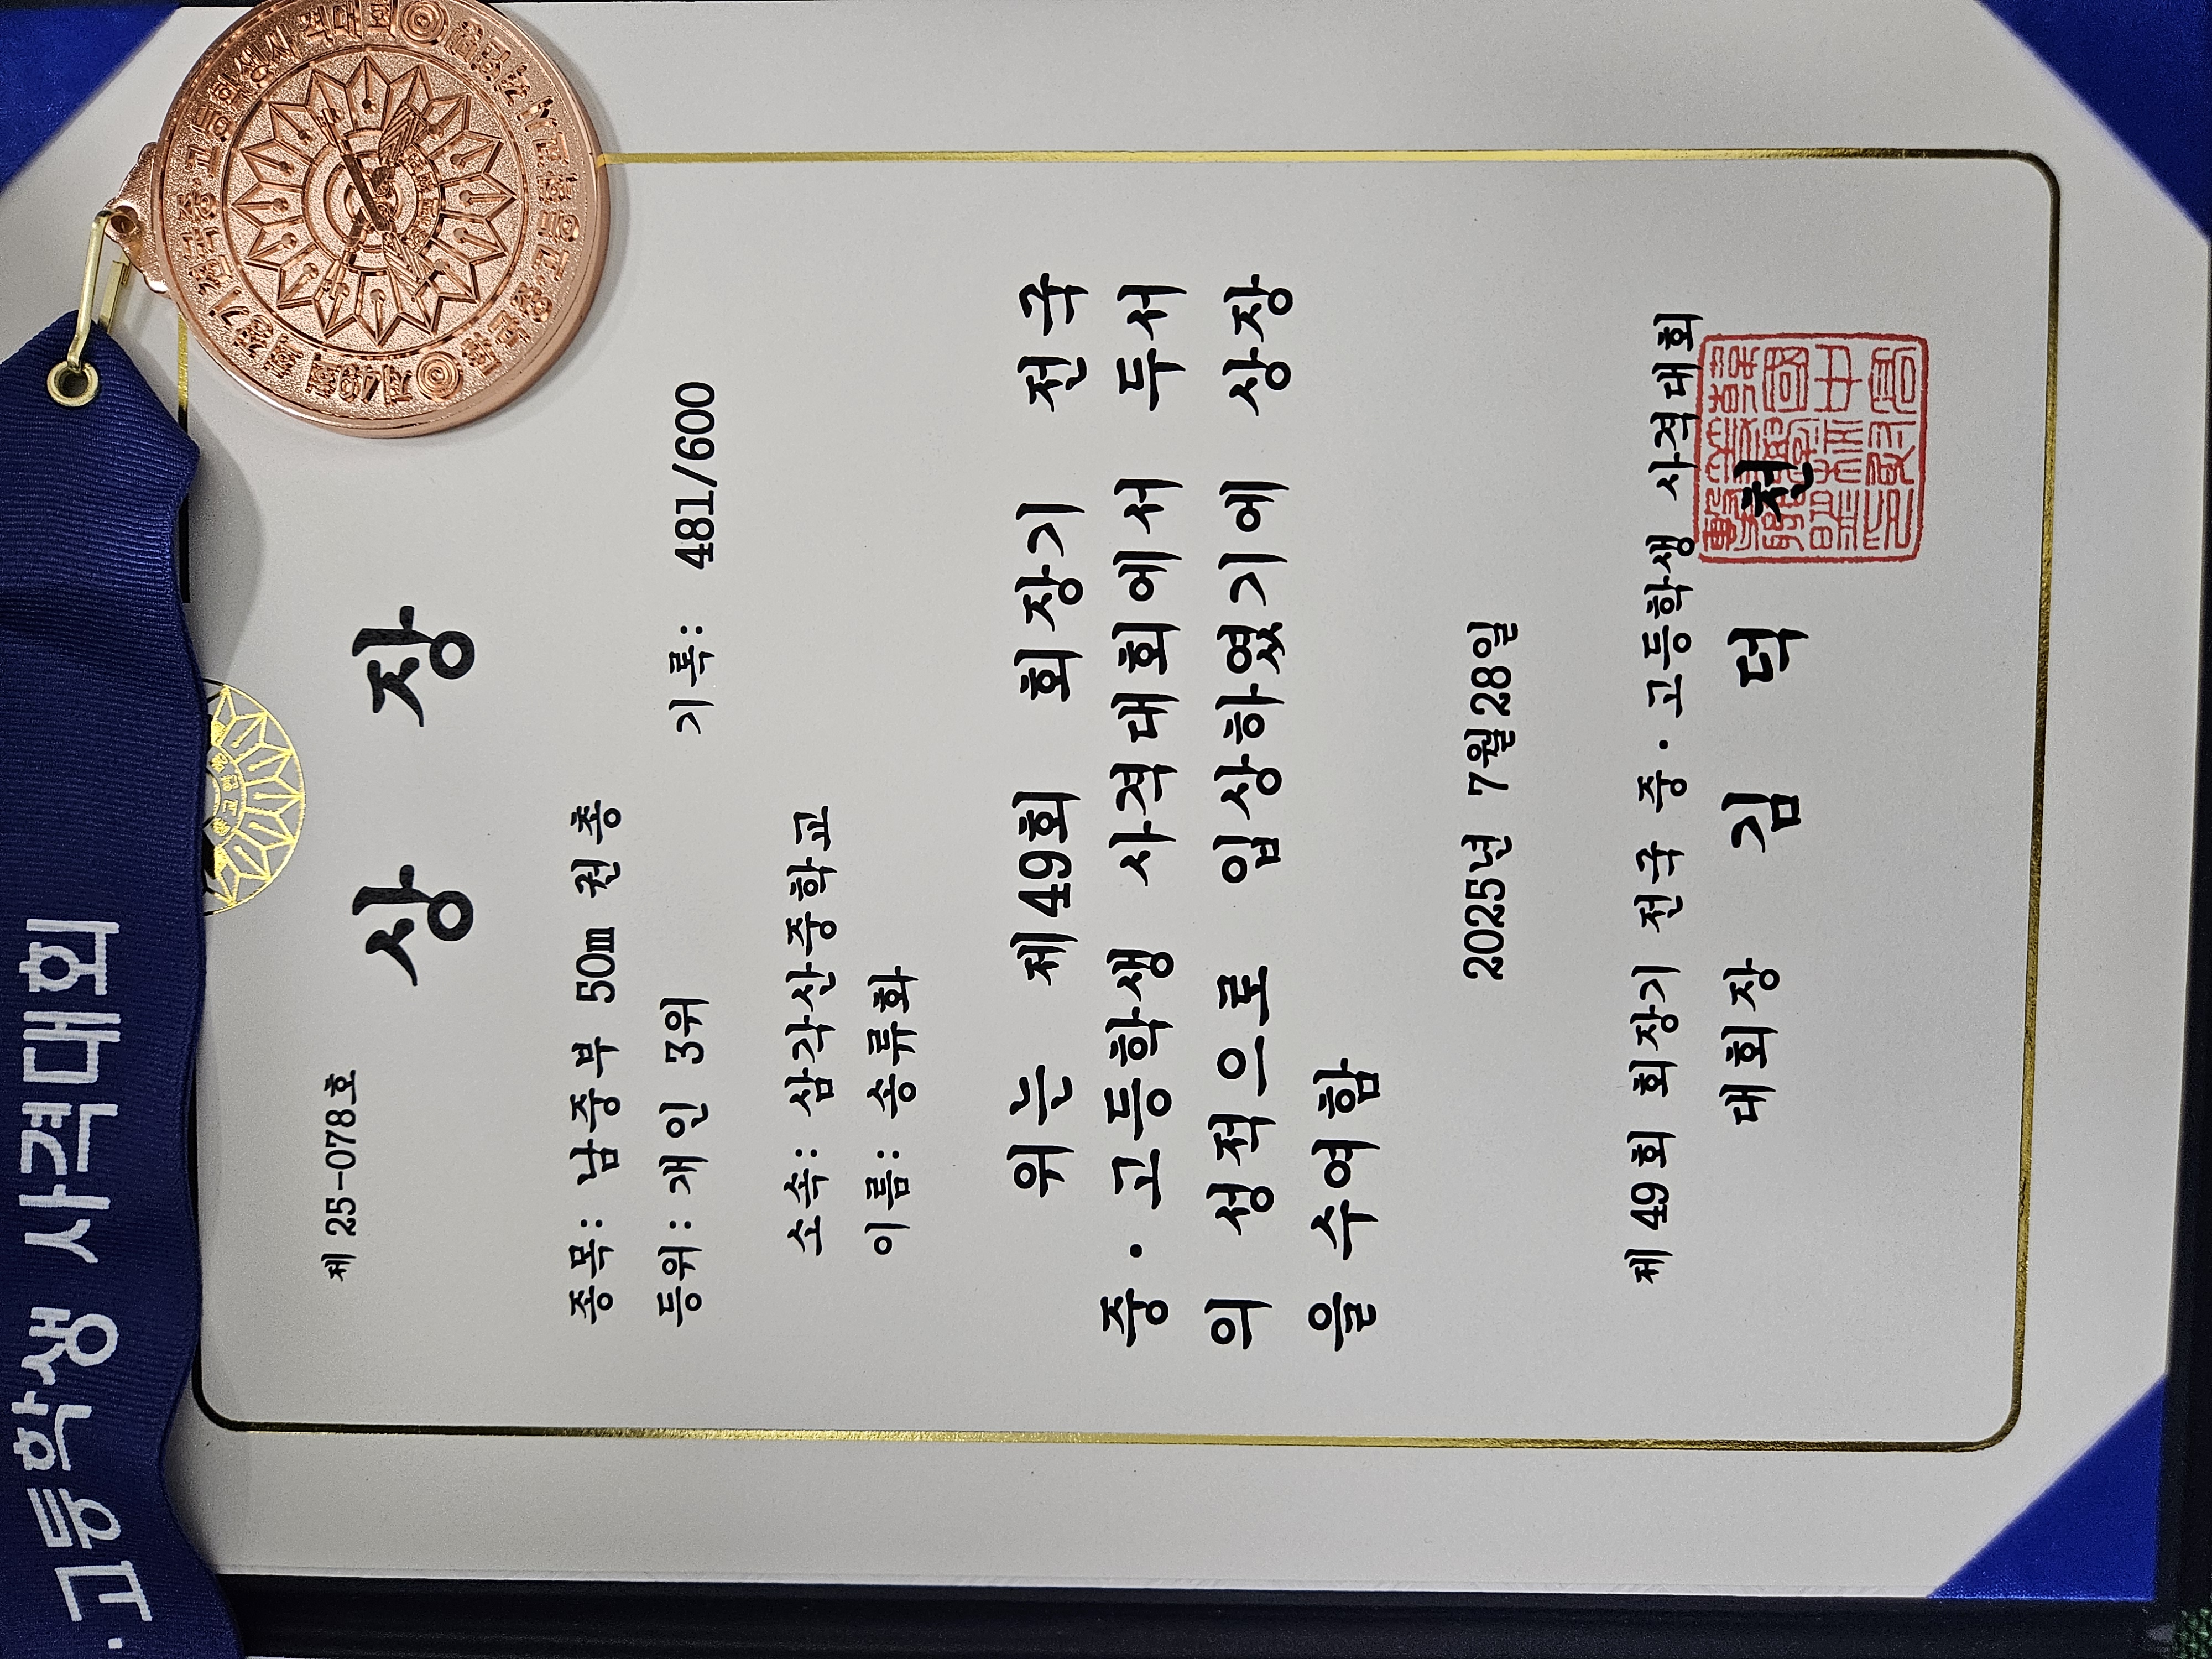 · 고등학생 사격대회
제49회 회장기 전국 중·고등학생사격대회
제 25-078호
상 장
종목: 남중부 50m 권총
등위: 개인 3위 기록: 481/600
소속: 삼각산중학교
이름: 송류화
위는 제49회 회장기 전국
중·고등학생 사격대회에서 두서
의 성적으로 입상하였기에 상장
을 수여함
2025년 7월28일
제 49회 회장기 전국 중·고등학생 사격대회
대회장 김 덕 천